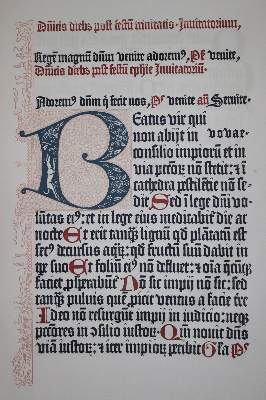 Dn̄icis diebꝫ post festū trinitatis. Inuitatorium,
Regē magnū dn̄m venite adoremꝰ, Pſ. venite,
Dn̄icis diebꝫ post festū ephie Inuitatoriū.
Adoremꝰ dn̄m q̄ fecit nos, Pſ venite an̄ Seruite.
BEatus vir qui
non abijt in vovae
consilio impiorū et in
via peccōꝝ nō stetit: ⁊ ī
cathedra pestilētie nō se⸗
dit. Sed ī lege dn̄i vo⸗
lūtas eiꝰ: et in lege eius meditabit̄ die ac
nocte Et erit tanqꝫ lignū qḋ plātatū est
secꝰ decursus aq̄ꝝ: qḋ fructū suū dabit in
tꝑe suo Et foliū eiꝰ nō defluet: ⁊ oīa q̄cūqꝫ
faciet ꝓsꝑabūt̄ Nō sic impij nō sic: sed
tanqꝫ puluis quē ꝓicit ventus a facie tre
Ideo nō resurgūt impij in iudico: neqꝫ
peccōres in ↄsilio iustoꝝ. Qm̄ nouit dn̄s
viā iustoꝝ: ⁊ iter impioꝝ peribit Gl̄a Pſ